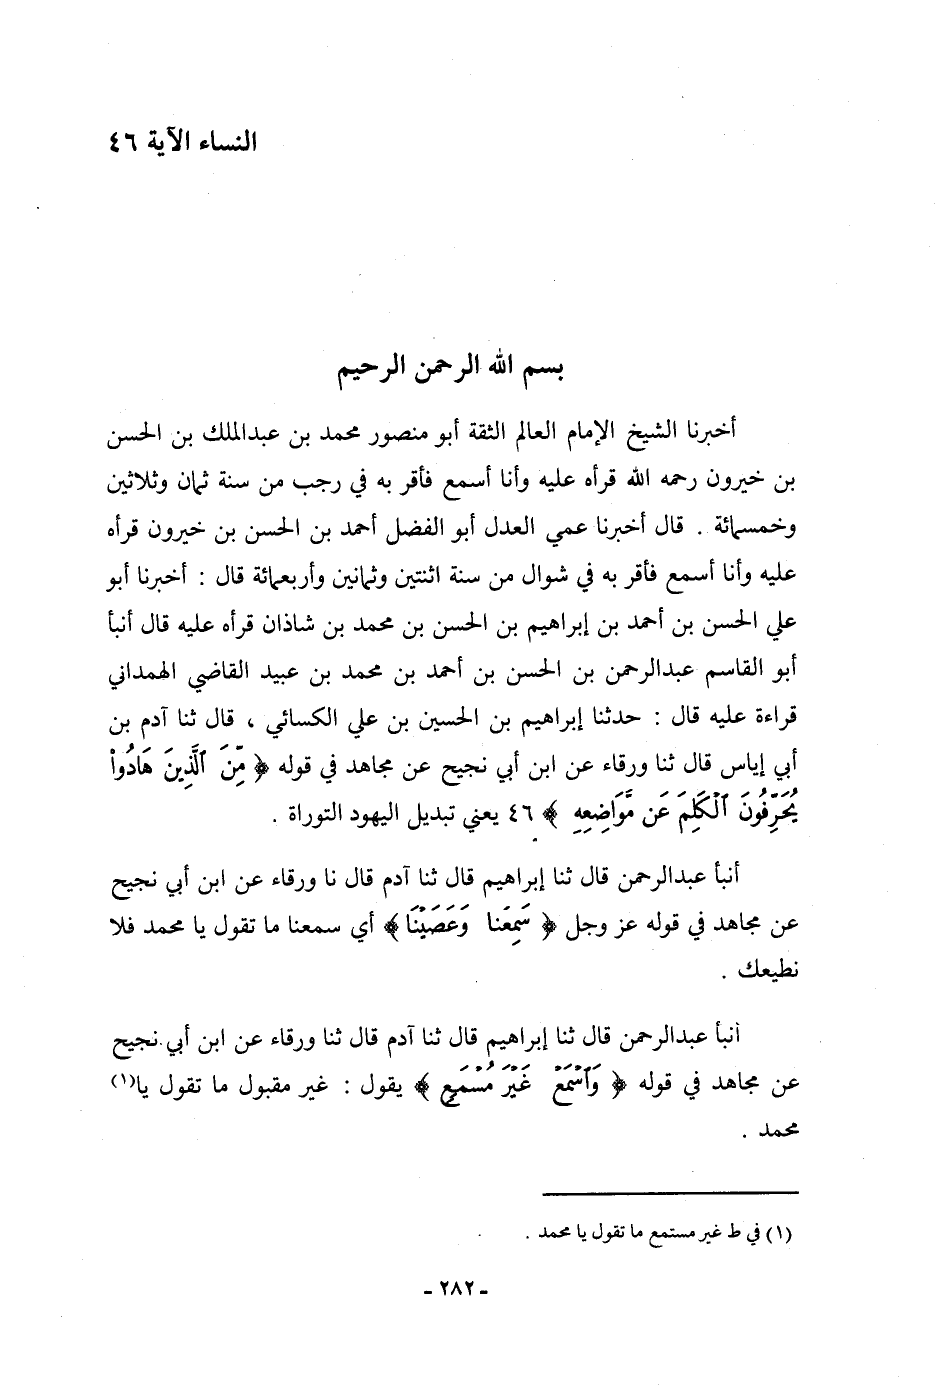 النساء الآية ٤٦
بسم الله الرحمن الرحيم
أخبرنا الشيخ الإمام العالم الثقة أبو منصور محمد بن عبدالملك بن الحسن
بن خيرون رحمه الله قرأه عليه وأنا أسمع فأقر به في رجب من سنة ثمان وثلاثين
وخمسمائة . قال أخبرنا عمي العدل أبو الفضل أحمد بن الحسن بن خيرون قرأه
عليه وأنا أسمع فأقر به في شوال من سنة اثنتين وثمانين وأربعمائة قال : أخبرنا أبو
علي الحسن بن أحمد بن إبراهيم بن الحسن بن محمد بن شاذان قرأه عليه قال أنبأ
أبو القاسم عبدالرحمن بن الحسن بن أحمد بن محمد بن عبيد القاضي الهمداني
قراءة عليه قال : حدثنا إبراهيم بن الحسين بن علي الكسائي ، قال ثنا آدم بن
أبي إياس قال ثنا ورقاء عن ابن أبي نجيح عن مجاهد في قوله ﴿ مِّنَ ٱلَّذِينَ هَادُواْ
يُحَرِّفُونَ ٱلْكَلِمَ عَن مَّوَاضِعِهِ ﴾ ٤٦ يعني تبديل اليهود التوراة .
أنبأ عبدالرحمن قال ثنا إبراهيم قال ثنا آدم قال نا ورقاء عن ابن أبي نجيح
عن مجاهد في قوله عز وجل ﴿ سَمِعْنَا وَعَصَيْنَا ﴾ أي سمعنا ما تقول يا محمد فلا
نطيعك .
أنبأ عبدالرحمن قال ثنا إبراهيم قال ثنا آدم قال ثنا ورقاء عن ابن أبي نجيح
عن مجاهد في قوله ﴿ وَٱسْمَعْ غَيْرَ مُسْمَعٍ ﴾ يقول : غير مقبول ما تقول يا(١)
محمد .
(١) في ط غير مستمع ما تقول يا محمد .
- ٢٨٢ -